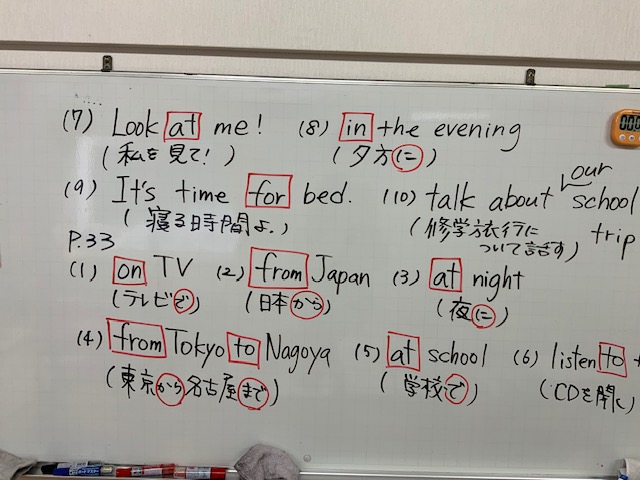 (7) Look at me! (8) in the evening
(私を見て!) (夕方に)
our
(9) It's time for bed. (10) talk about school
(寝る時間よ。) (修学旅行に
trip
P.33 ついて話す)
(1) on TV (2) from Japan (3) at night
(テレビで) (日本から) (夜に)
(4) from Tokyo to Nagoya (5) at school (6) listen to
(東京から名古屋まで) (学校で) (CDを聞く